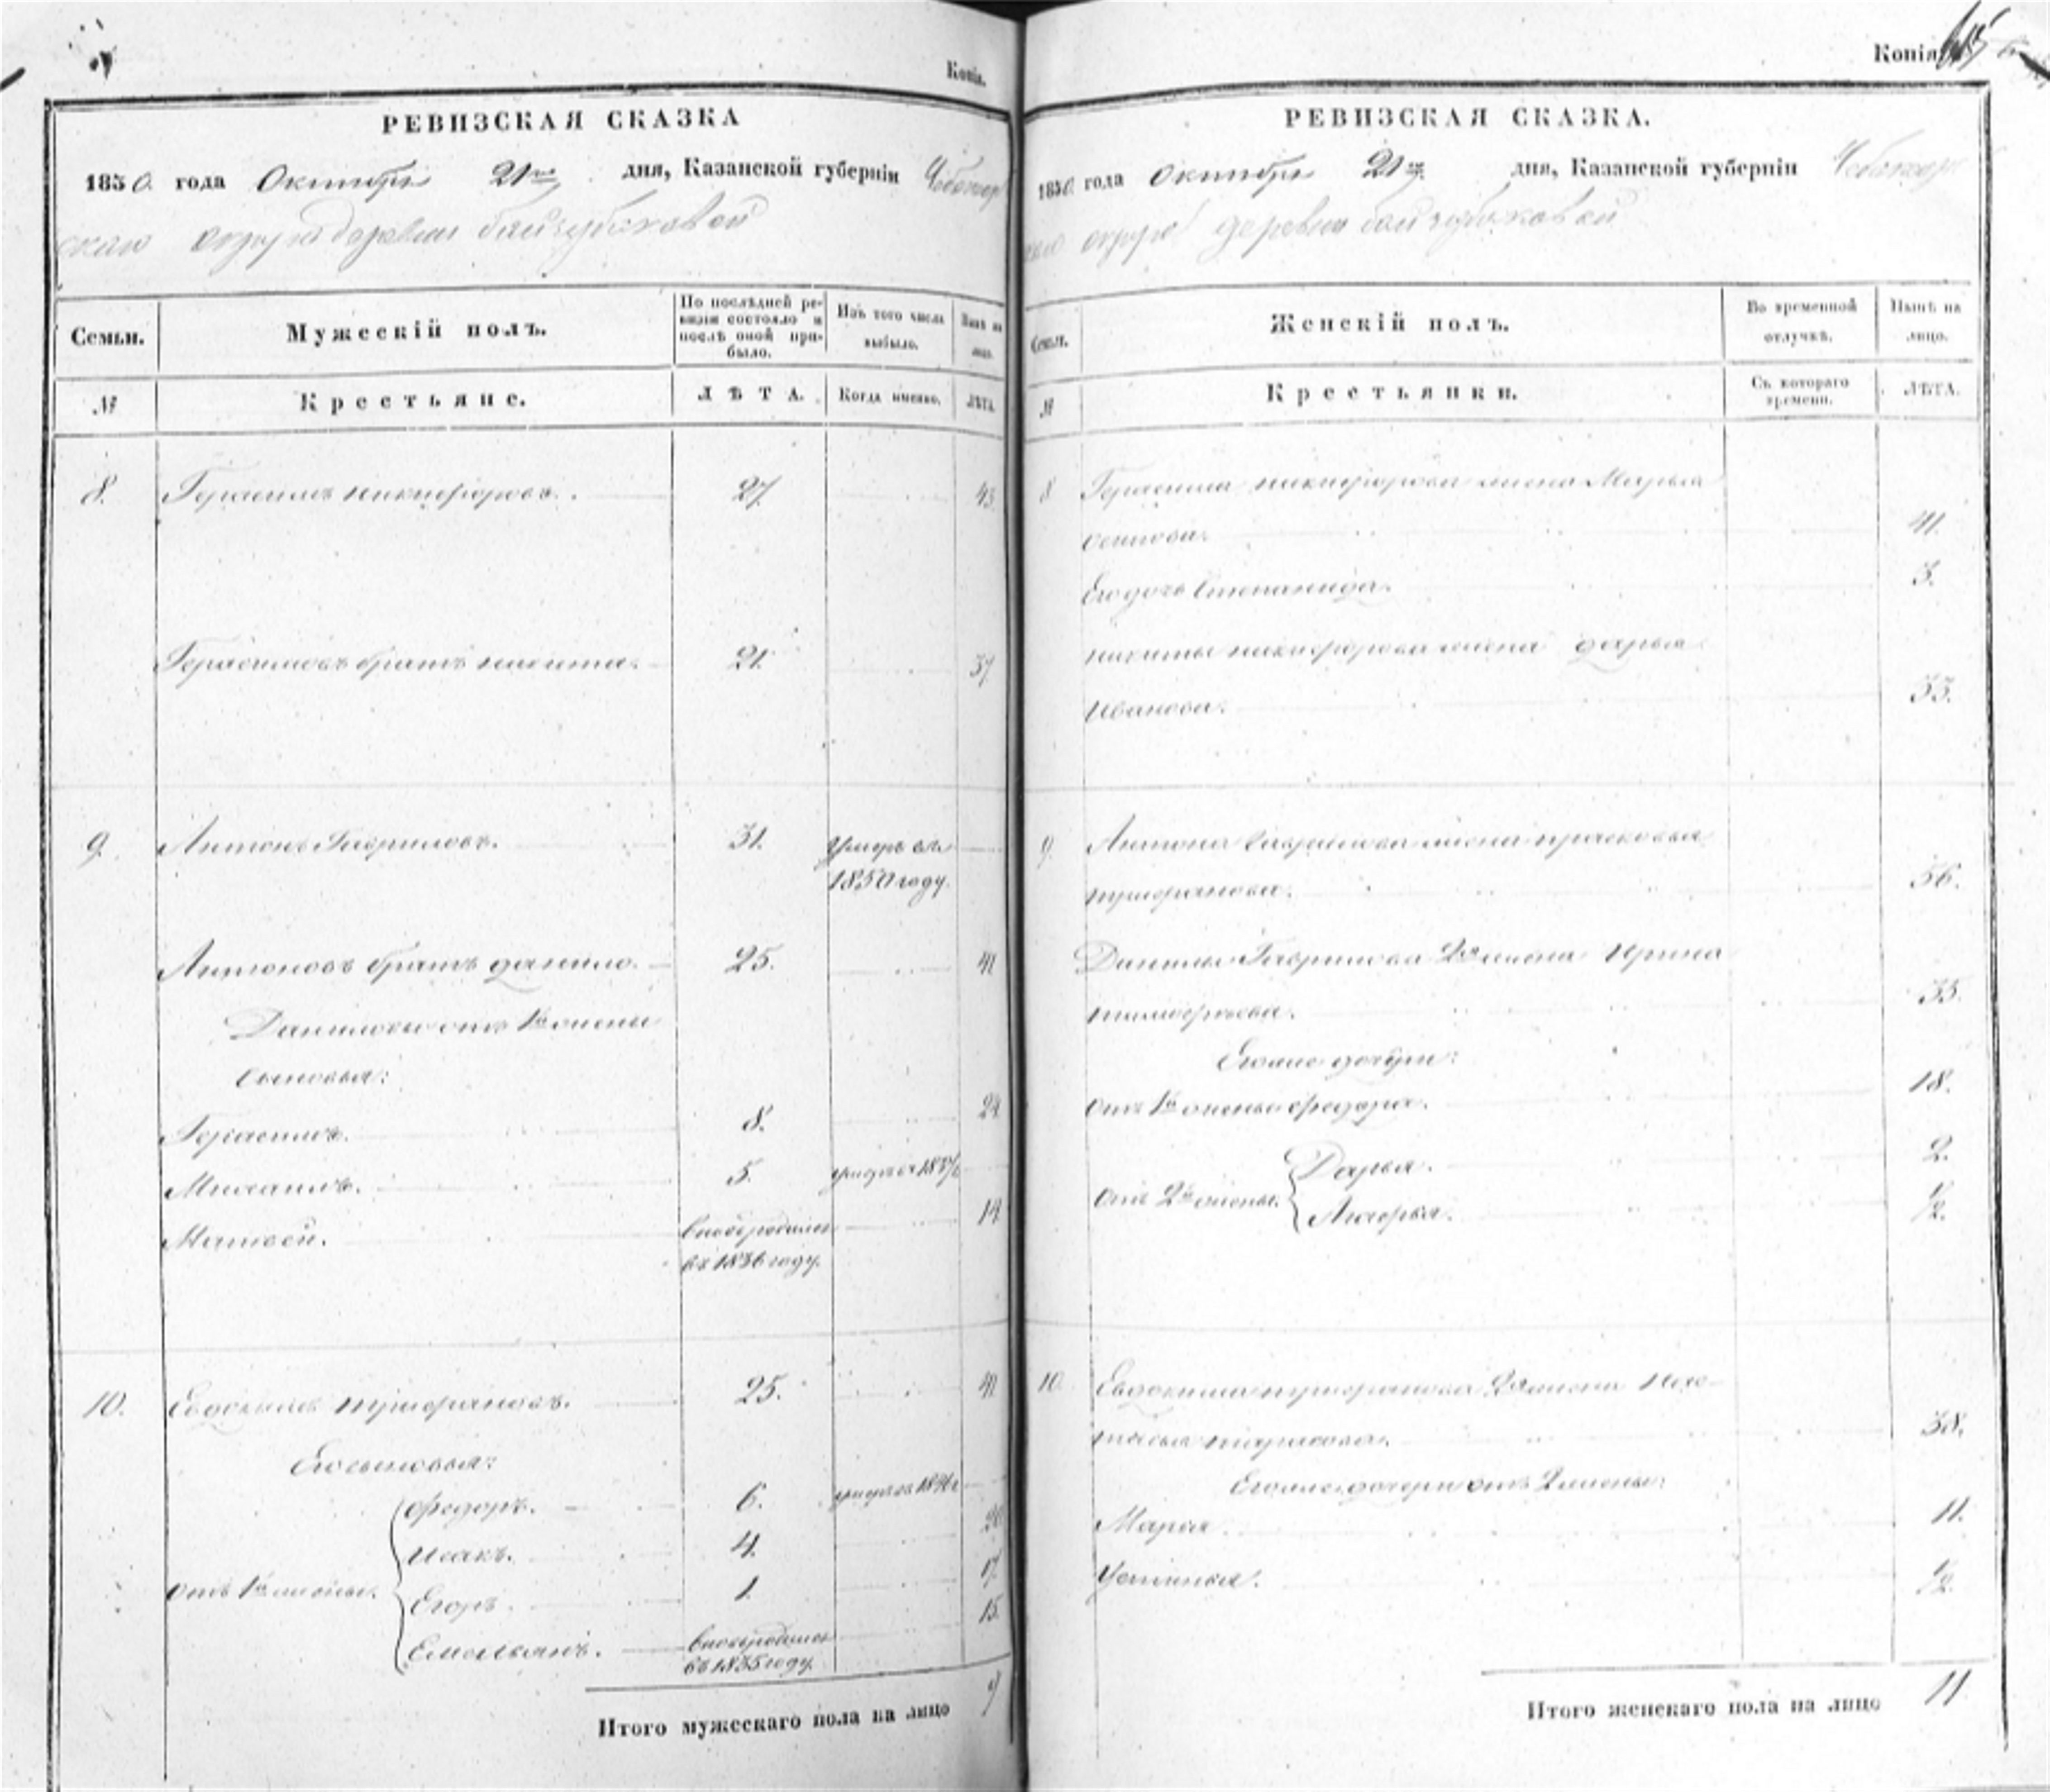 Копія.
РЕВИЗСКАЯ СКАЗКА
1850. года Октября 21го дня, Казанской губерніи Чебоксар
ской округи деревни
Семьи.
Мужескій полъ.
По послѣдней ре-
визіи состояло и
послѣ оной при-
было.
Изъ того числа
выбыло.
Нынѣ на
лицо.
№
Крестьяне.
ЛѢТА.
Когда именно.
ЛѢТА.
8. Герасимъ никифоровъ. 27. 43
Герасимовъ братъ никита. 21. 37
9. Антонъ Гавриловъ. 31. Умеръ въ
1850 году.
Антоновъ братъ данило. 25. 41
Даниловы отъ 1й жены
сыновья:
Герасимъ. 8. 24
Михаилъ. 5.
Матвей. 14
въ 1836 году.
10. Евдокимъ 25. 41
Его сыновья:
Федоръ. 6.
Исакъ. 4. 20
отъ 1й жены. Егоръ. 1. 17
Емельянъ. 15
въ 1835 году.
Итого мужескаго пола на лицо 9
Копія
РЕВИЗСКАЯ СКАЗКА.
1850 года Октября 21го дня, Казанской губерніи Чебоксар
ской округи деревни
Семьи.
Женскій полъ.
Во временной
отлучкѣ.
Нынѣ на
лицо.
№
Крестьянки.
Съ котораго
времени.
ЛѢТА.
8 Герасима никифорова жена Марья
осипова. 41.
Его дочь Степанида. 3.
никиты никифорова жена дарья
Иванова. 33.
9 Антона Гаврилова жена прасковья
56.
Данилы Гаврилова 2я жена Ирина
тимофеева. 35.
Его же дочери:
отъ 1й жены федора. 18.
отъ 2й жены. Дарья. 2.
1/2.
10 Евдокима 2я жена нас-
тасья тарасова. 38.
Его же дочери отъ 2 жены:
Марья. 11.
Устинья. 1/2.
Итого женскаго пола на лицо 11